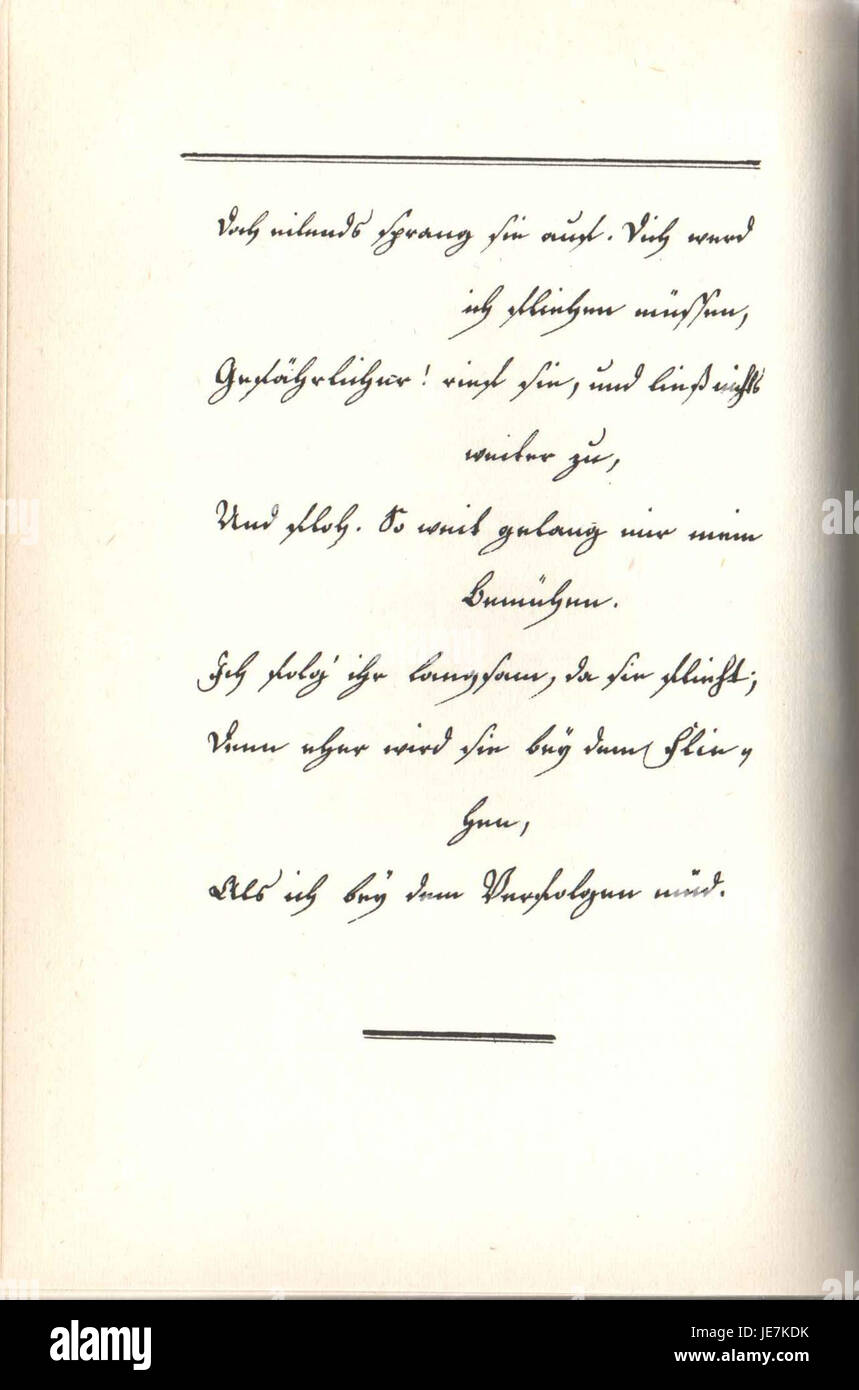 Doch eilends sprang sie auf. Dich werd
ich fliehen müssen,
Gefährlicher! rief sie, und ließ nichts
weiter zu,
Und floh. So weit gelang mir mein
Bemühen.
Ich folg' ihr langsam, da sie flieht;
Denn eher wird sie bey dem Flie-
hen,
Als ich bey dem Verfolgen müd.
alamy
Image ID: JE7KDK
www.alamy.com